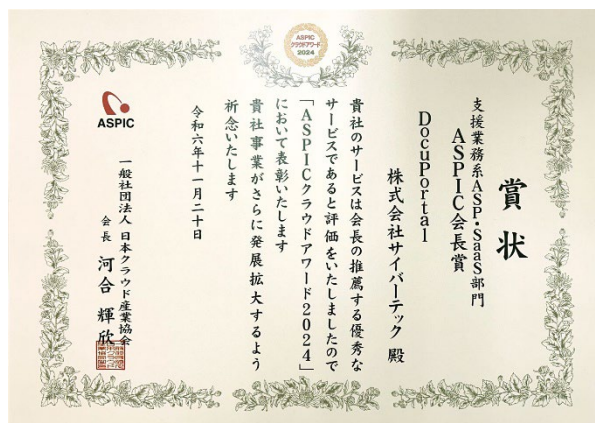 ASPIC
クラウドアワード
2024
賞状
支援業務系ASP・SaaS部門
ASPIC会長賞
DocuPortal
株式会社サイバーテック 殿
貴社のサービスは会長の推薦する優秀な
サービスであると評価をいたしましたので
「ASPICクラウドアワード2024」
において表彰いたします
貴社事業がさらに発展拡大するよう
祈念いたします
令和六年十一月二十日
ASPIC
一般社団法人 日本クラウド産業協会
会長 河合 輝欣